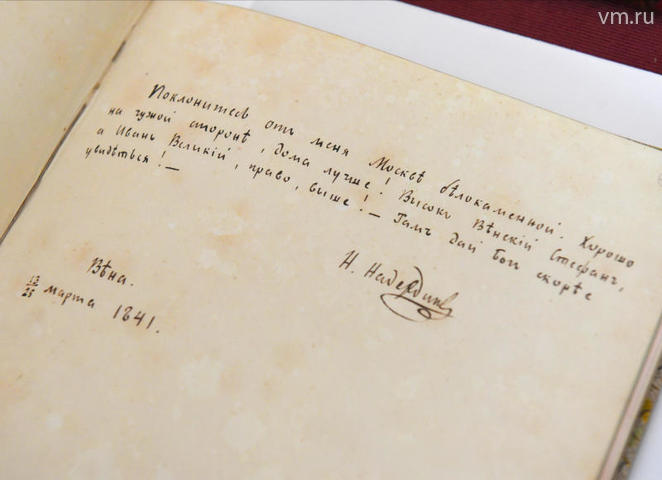 vm.ru
Поклонитесь отъ меня Москвѣ бѣлокаменной. Хорошо
на чужой сторонѣ, дома лучше! Высокъ Вѣнскій Стефанъ,
а Иванъ Великій, право, выше! — Тамъ дай Богъ скорѣе
увидѣться! —
Н. Надеждинъ
Вѣна.
13/25 марта 1841.